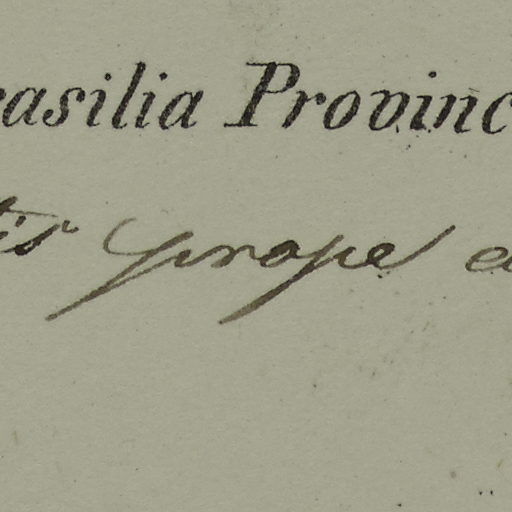 rasilia Provinc
tis prope a